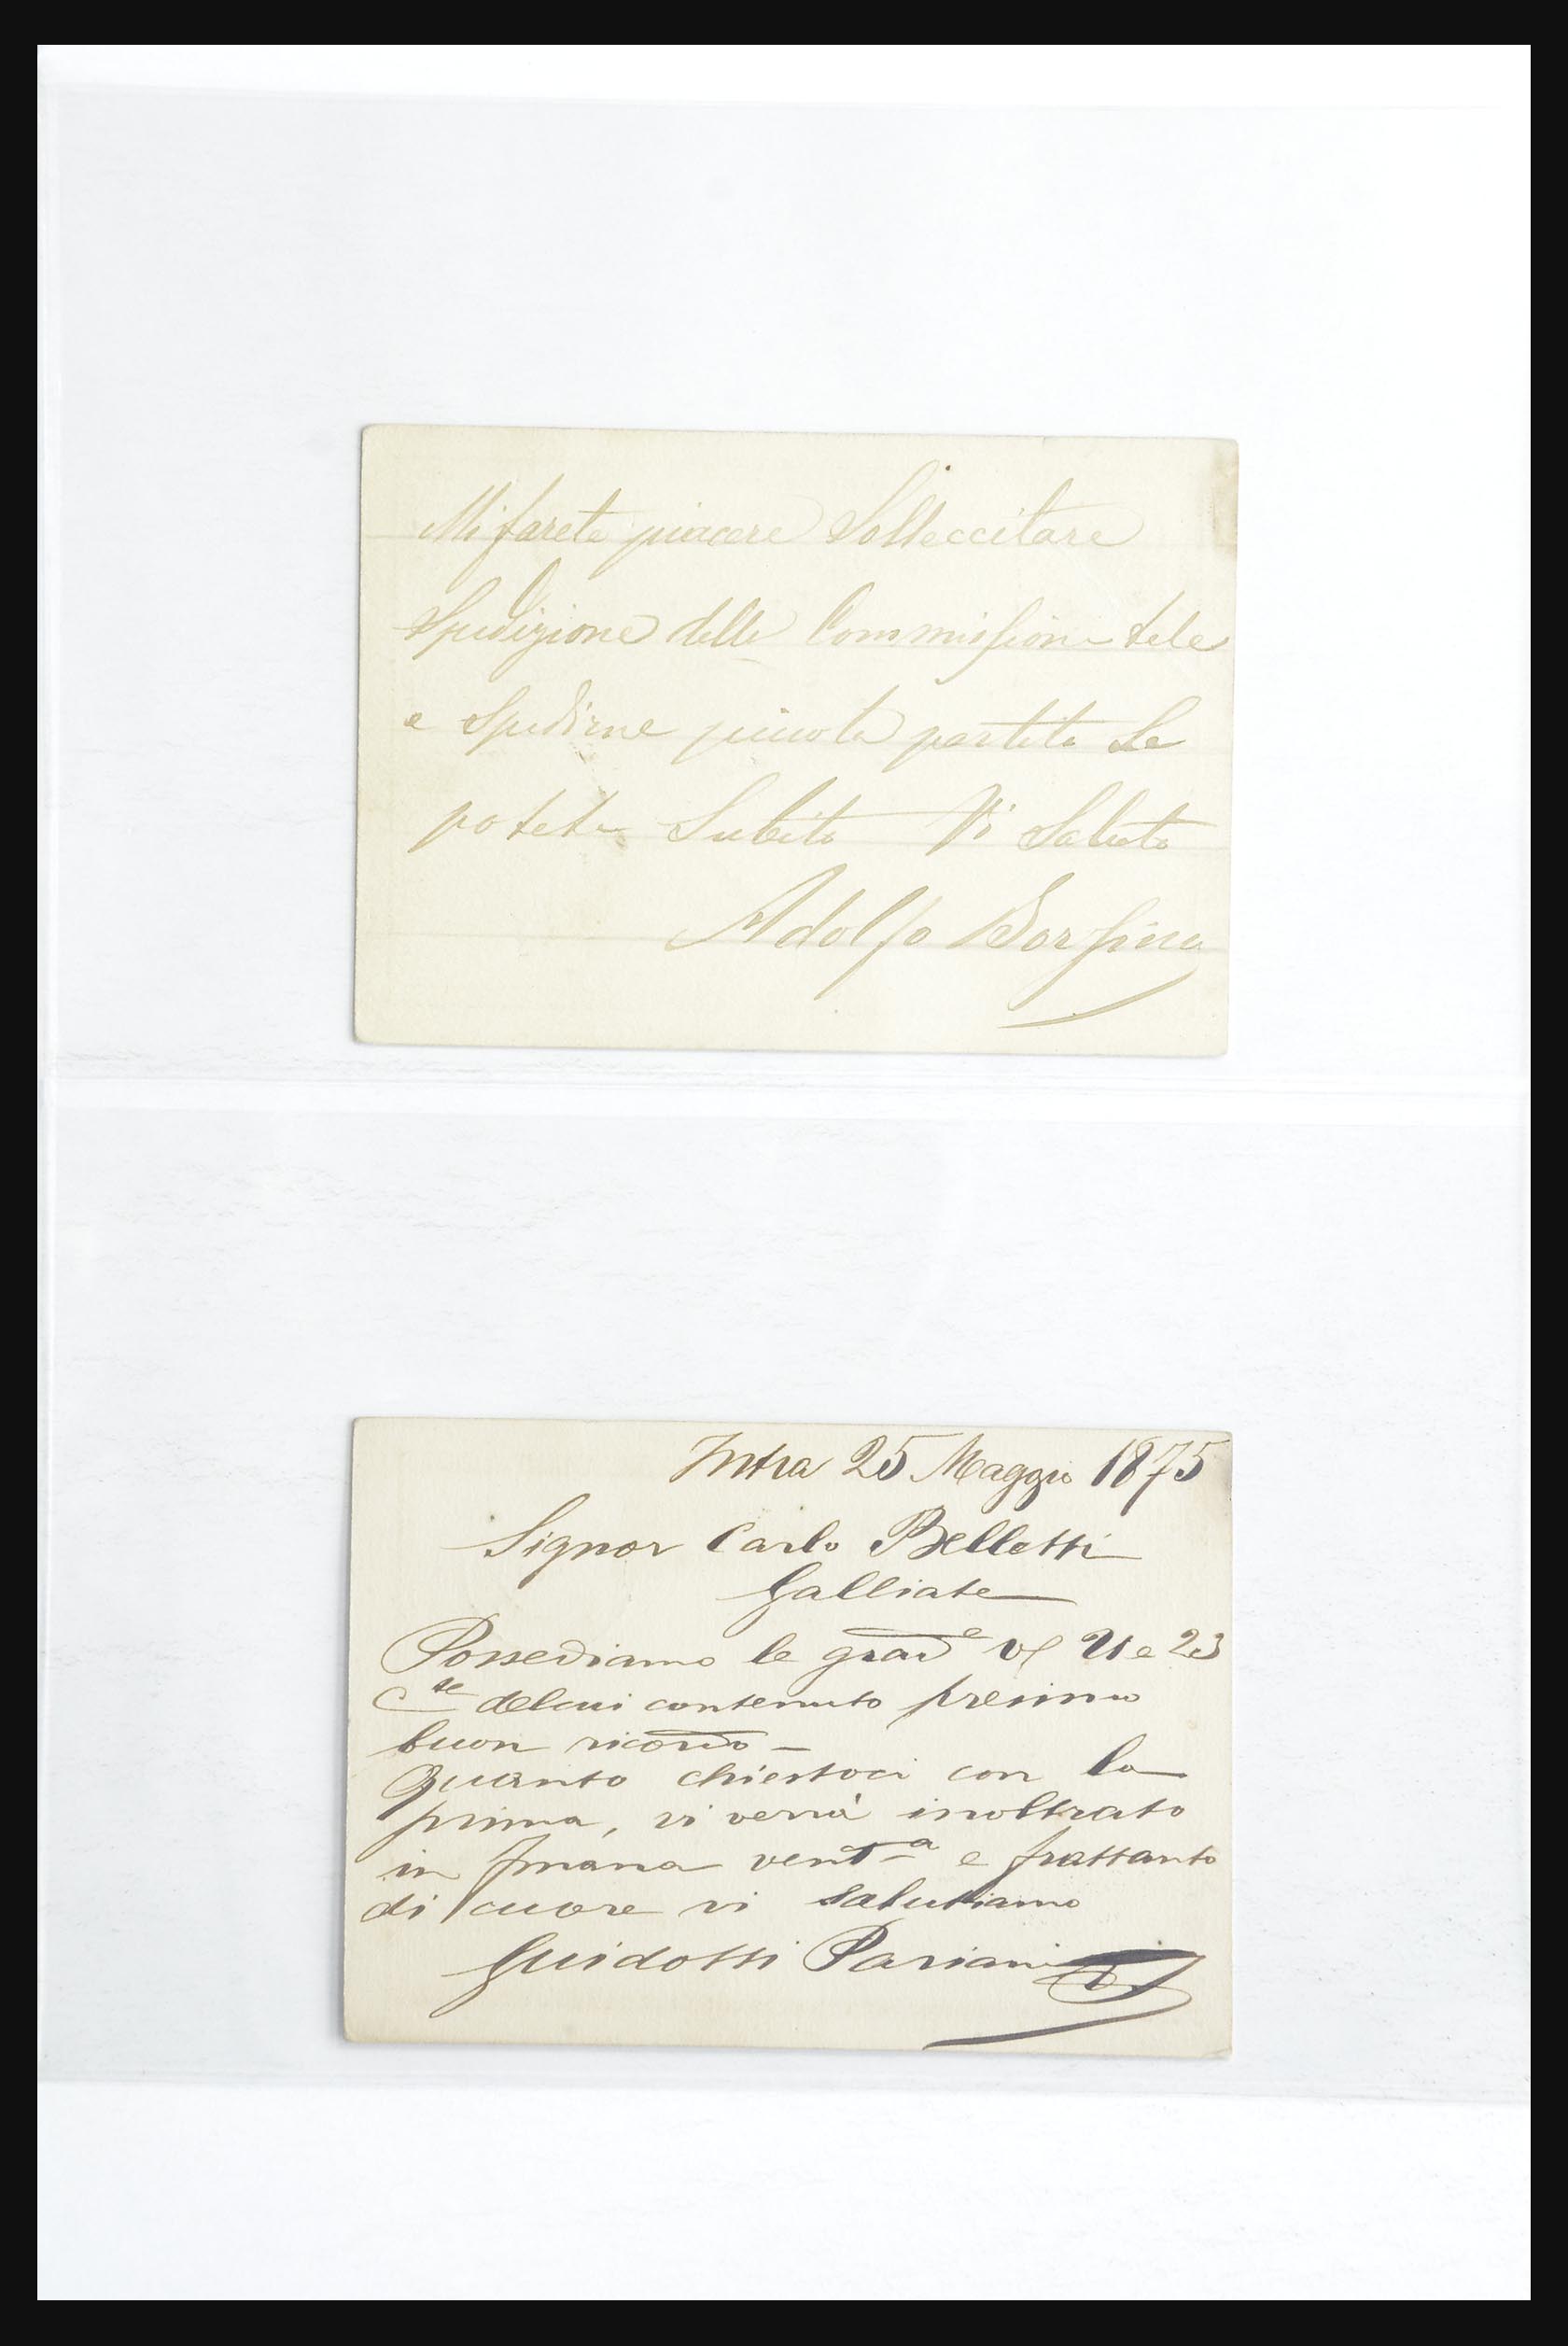 Mi farete piacere Solleccitare
Spedizione delle Commissioni tele
e Spedirne piccola partita Se
potete Subito Vi Saluto
Adolfo
Intra 25 Maggio 1875
Signor Carlo Belletti
Galliate
Possediamo le grad.e V/ 21 e 23
c.te del cui contenuto presimo
buon ricordo –
Quanto chiestoci con la
prima, vi verrà inoltrato
in vent.a e frattanto
di cuore vi salutiamo
Guidotti Pariani